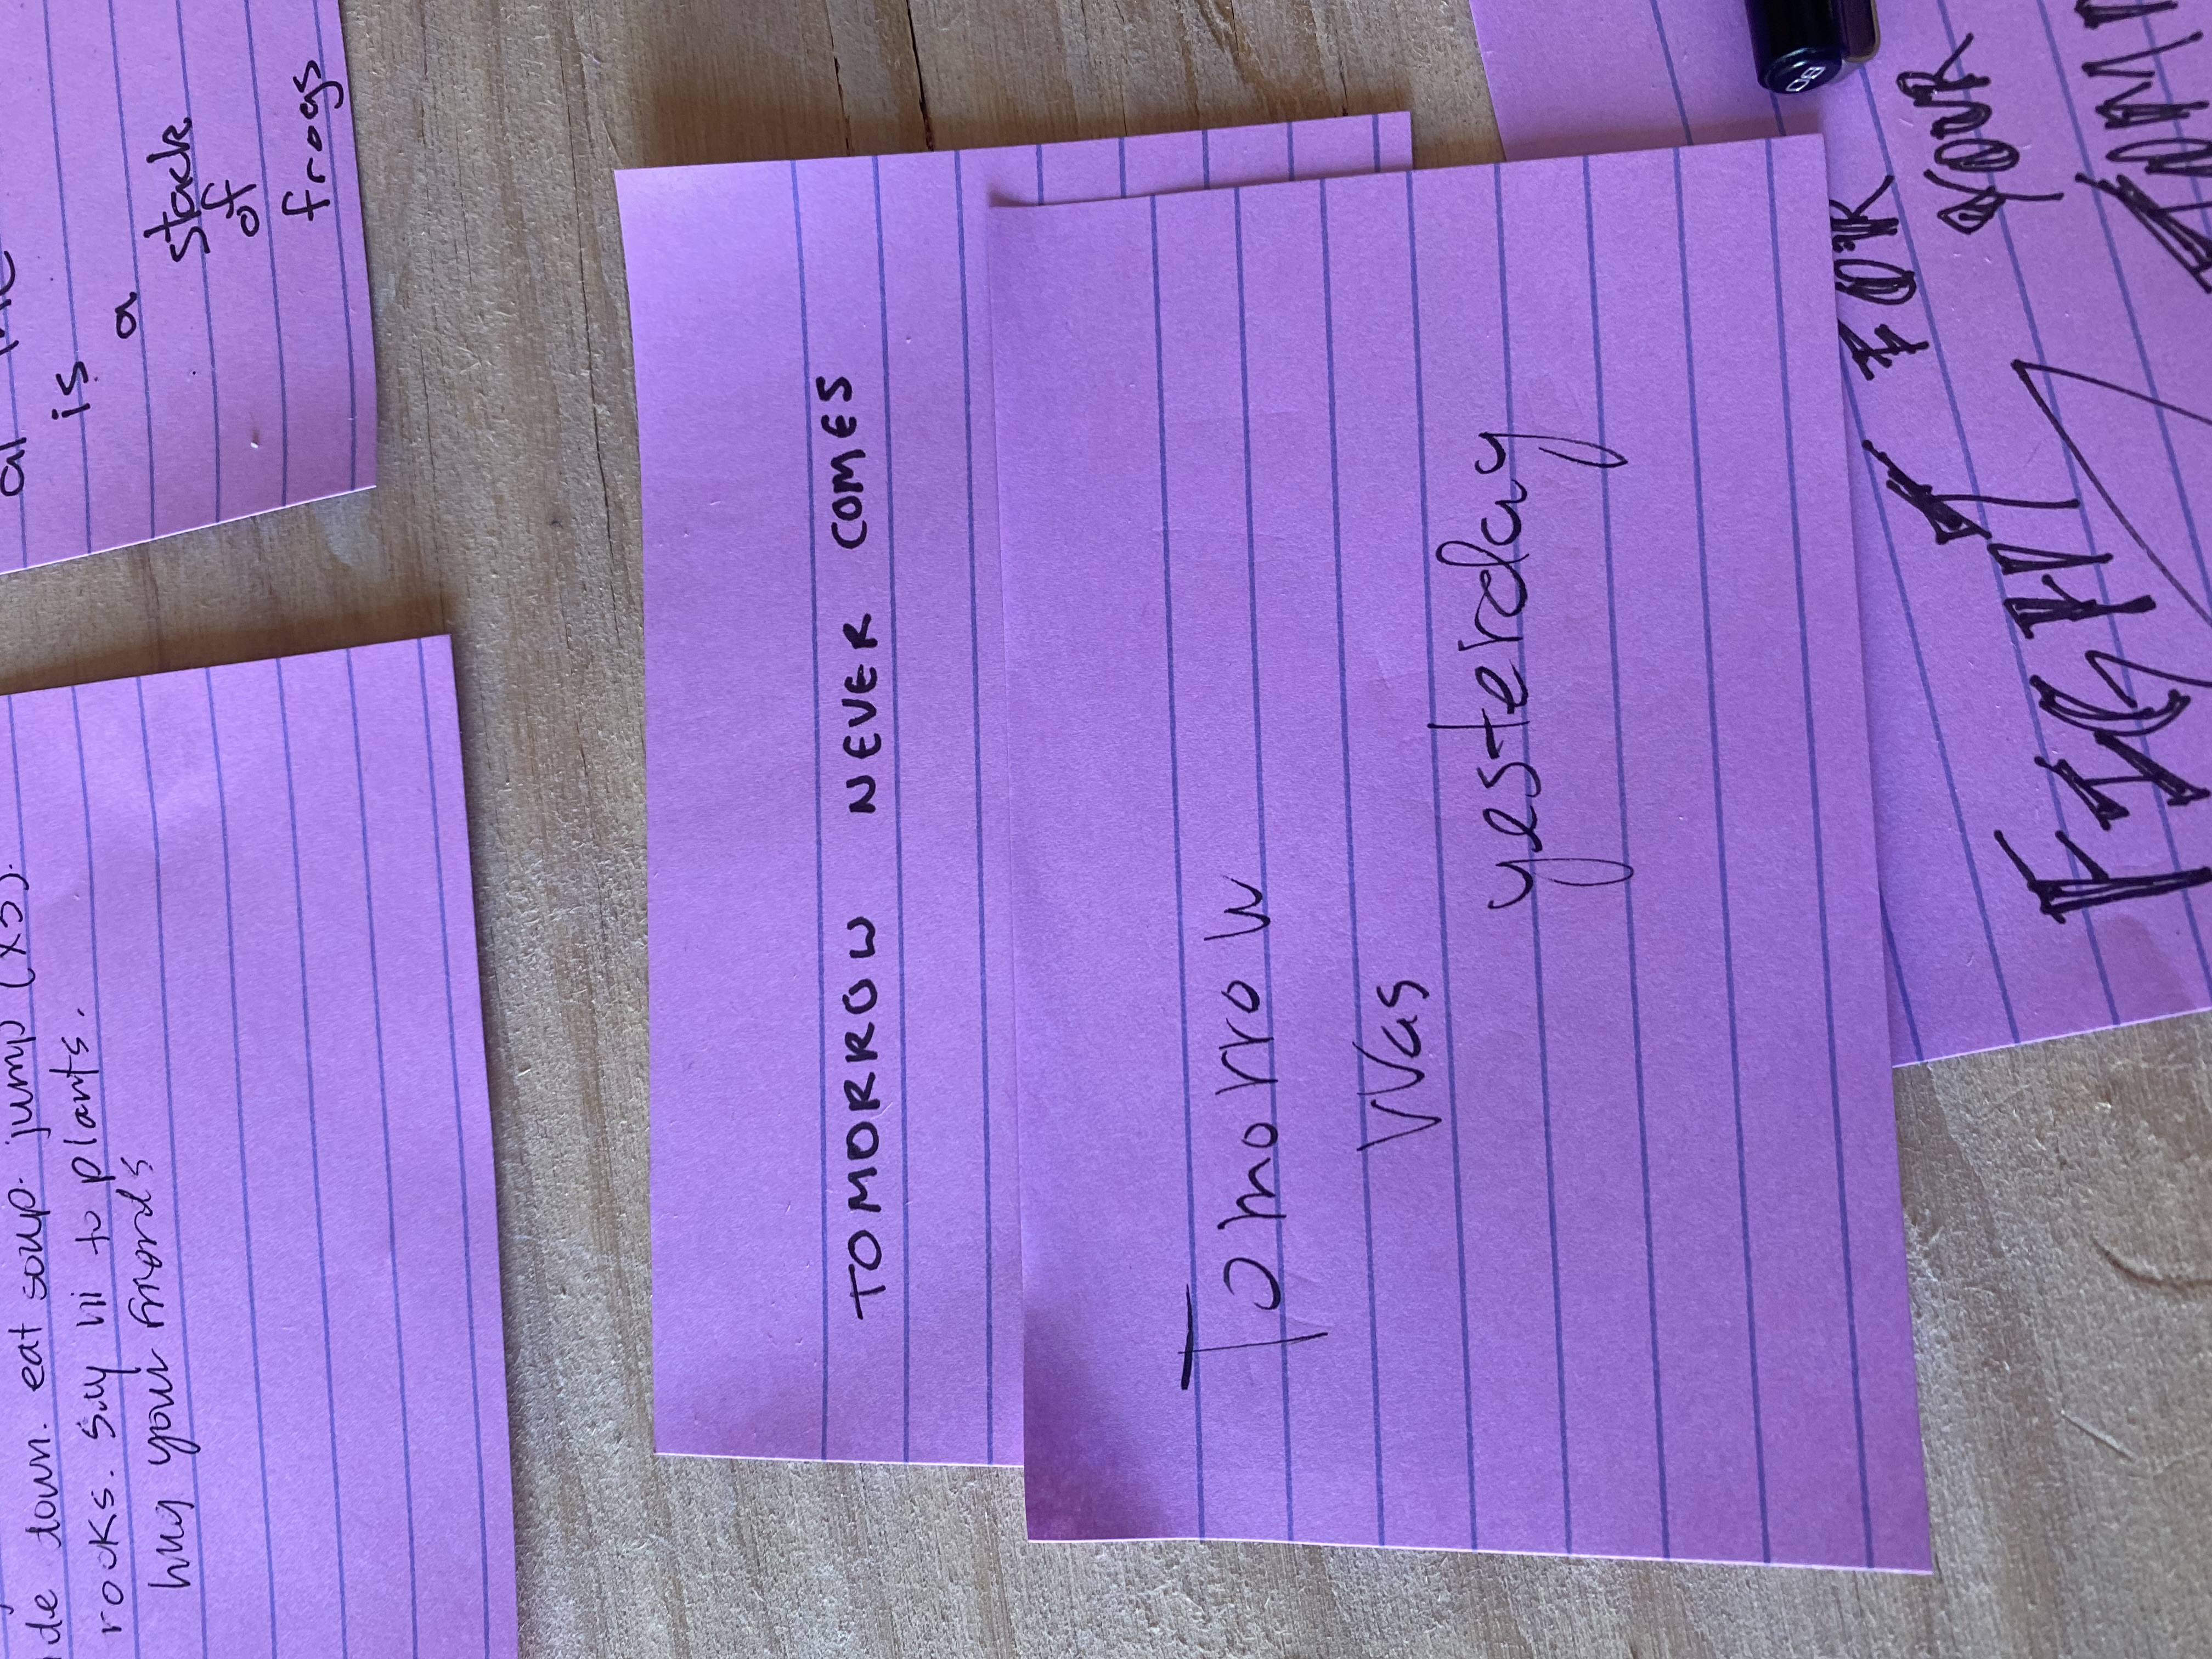 down. eat soup. jump (x3).
rocks. Say hi to plants.
hug your friends
at the
is
a
stack
of
frogs
TOMORROW NEVER COMES
Tomorrow
Was
yesterday
08
FIGHT FOR
YOUR